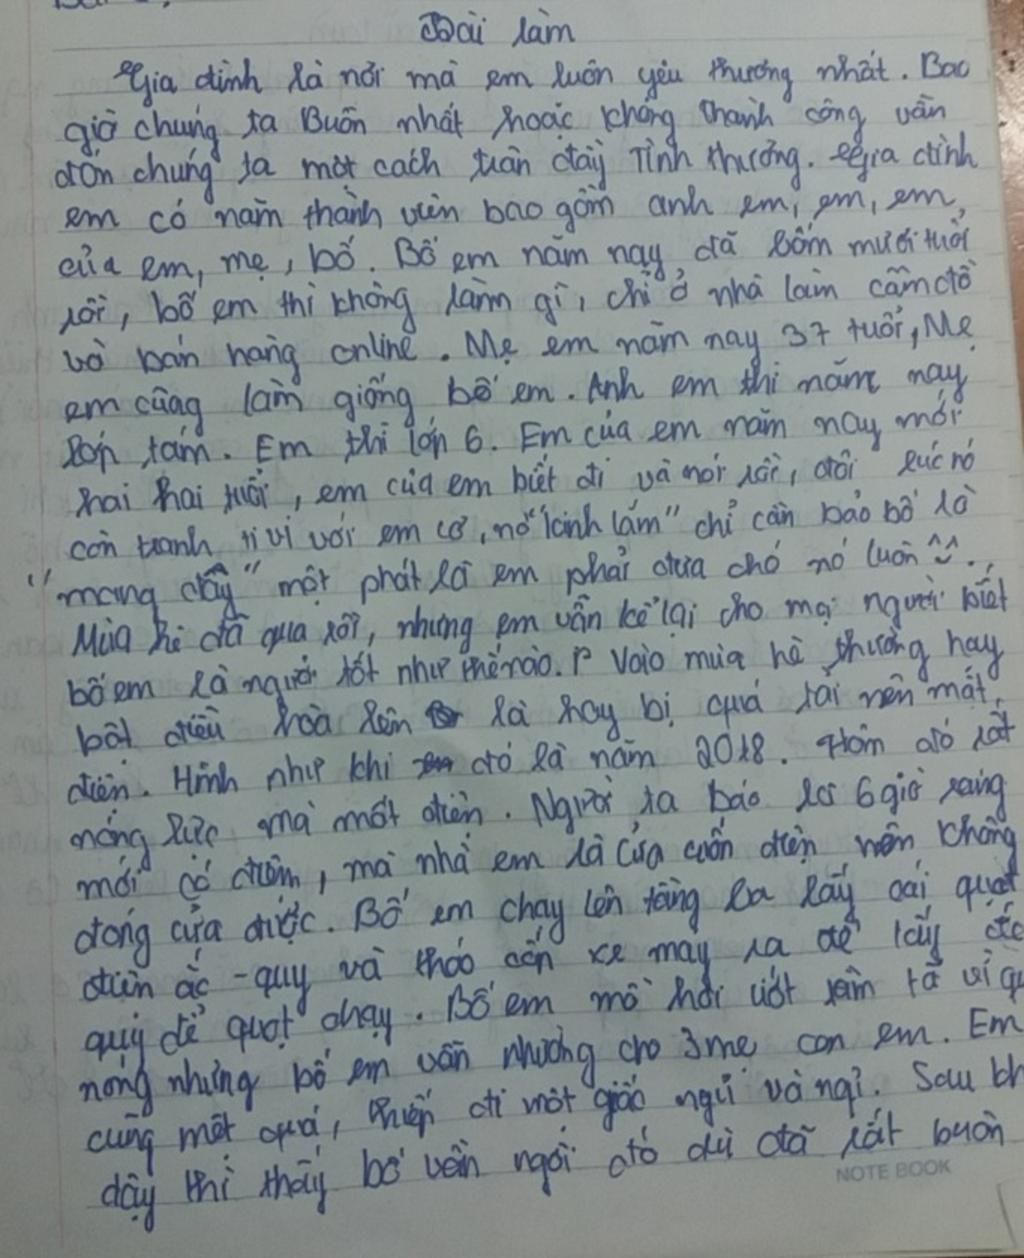 Bài làm
Gia đình là nơi mà em luôn yêu thương nhất. Bao
giờ chúng ta Buồn nhất hoặc không thành công vẫn
đón chúng ta một cách tràn đầy Tình thương. Gia đình
em có năm thành viên bao gồm anh em, em, em
của em, mẹ, bố. Bố em năm nay đã bốn mươi tuổi
rồi, bố em thì không làm gì, chỉ ở nhà làm cầm đồ
và bán hàng online. Mẹ em năm nay 37 tuổi, Mẹ
em cũng làm giống bố em. Anh em thì năm nay
lớp tám. Em thì lớp 6. Em của em năm nay mới
hai hai tuổi, em của em biết đi và nói rồi, đôi lúc nó
còn tranh ti vi với em cơ, nó "kinh lắm" chỉ cần bảo bố là
"mang đây" một phát là em phải đưa cho nó luôn ^^
Mùa hè đã qua rồi, nhưng em vẫn kể lại cho mọi người biết
bố em là người tốt như thế nào. Vào mùa hè thường hay
bật điều hoà lên là hay bị quá tải nên mất
điện. Hình như khi đó là năm 2018. Hôm đó rất
nóng lực, mà mất điện. Người ta báo là 6 giờ sáng
mới có điện, mà nhà em là cửa cuốn điện nên không
đóng cửa được. Bố em chạy lên tầng ba lấy cái quạt
điện ắc-quy và tháo cốp xe máy ra để lấy ắc
quy để quạt chạy. Bố em mồ hôi ướt rầm rã vì
nóng nhưng bố em vẫn nhường cho 3 mẹ con em. Em
cũng mệt quá, thiếp đi một giấc ngủ và ngỉ. Sau
dậy thì thấy bố vẫn ngồi đó dù đã rất buồn
NOTE BOOK